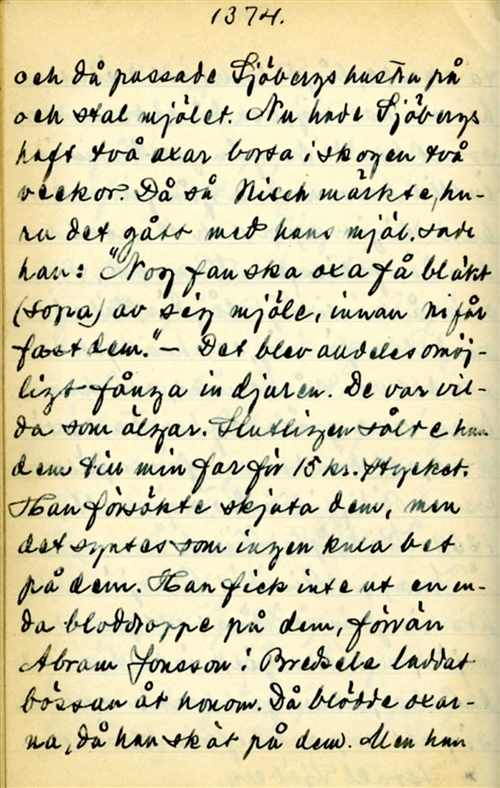 1374.
och då passade Sjöbergs hustru på
och stal mjölet. Nu hade Sjöbergs
haft två oxar borta i skogen två
veckor. Då så Nisch märkte, hu-
ru det gått med hans mjöl, sade
han: "Nog fan ska oxa få bläkt
(sopa) av ség mjöle, innan ni får
fast dem." — Det blev alldeles omöj-
ligt fånga in djuren. De var vil-
da som älgar. Slutligen sålde han
dem till min far för 15 kr. stycket.
Han försökte skjuta dem, men
det syntes som ingen kula bet
på dem. Han fick inte ut en en-
da bloddroppe på dem, förrän
Abram Jonsson i Bredsele laddat
bössan åt honom. Då blödde oxar-
na, då han sköt på dem. Men han